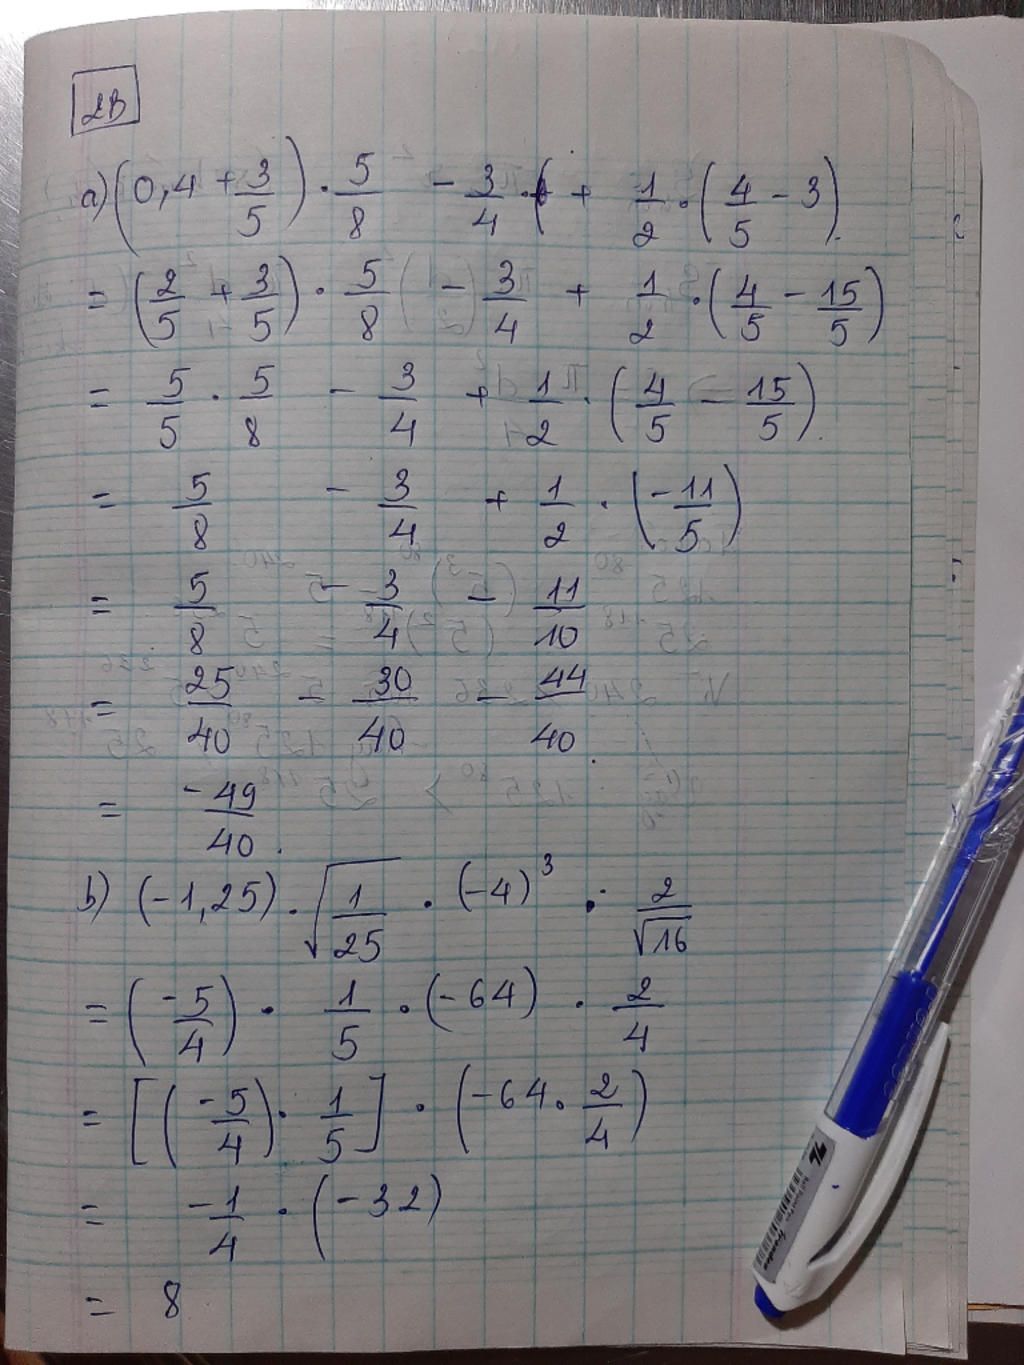 2B
a) (0,4 + 3/5) · 5/8 - 3/4 · ( + 1/2 · (4/5 - 3).
= (2/5 + 3/5) · 5/8 - 3/4 + 1/2 · (4/5 - 15/5)
= 5/5 · 5/8 - 3/4 + 1/2 · (4/5 - 15/5).
= 5/8 - 3/4 + 1/2 · (-11/5)
= 5/8 - 3/4 - 11/10
= 25/40 - 30/40 - 44/40
= -49/40.
b) (-1,25) · √(1/25) · (-4)³ · 2/√16
= (-5/4) · 1/5 · (-64) · 2/4
= [(-5/4) · 1/5] · (-64 · 2/4)
= -1/4 · (-32)
= 8